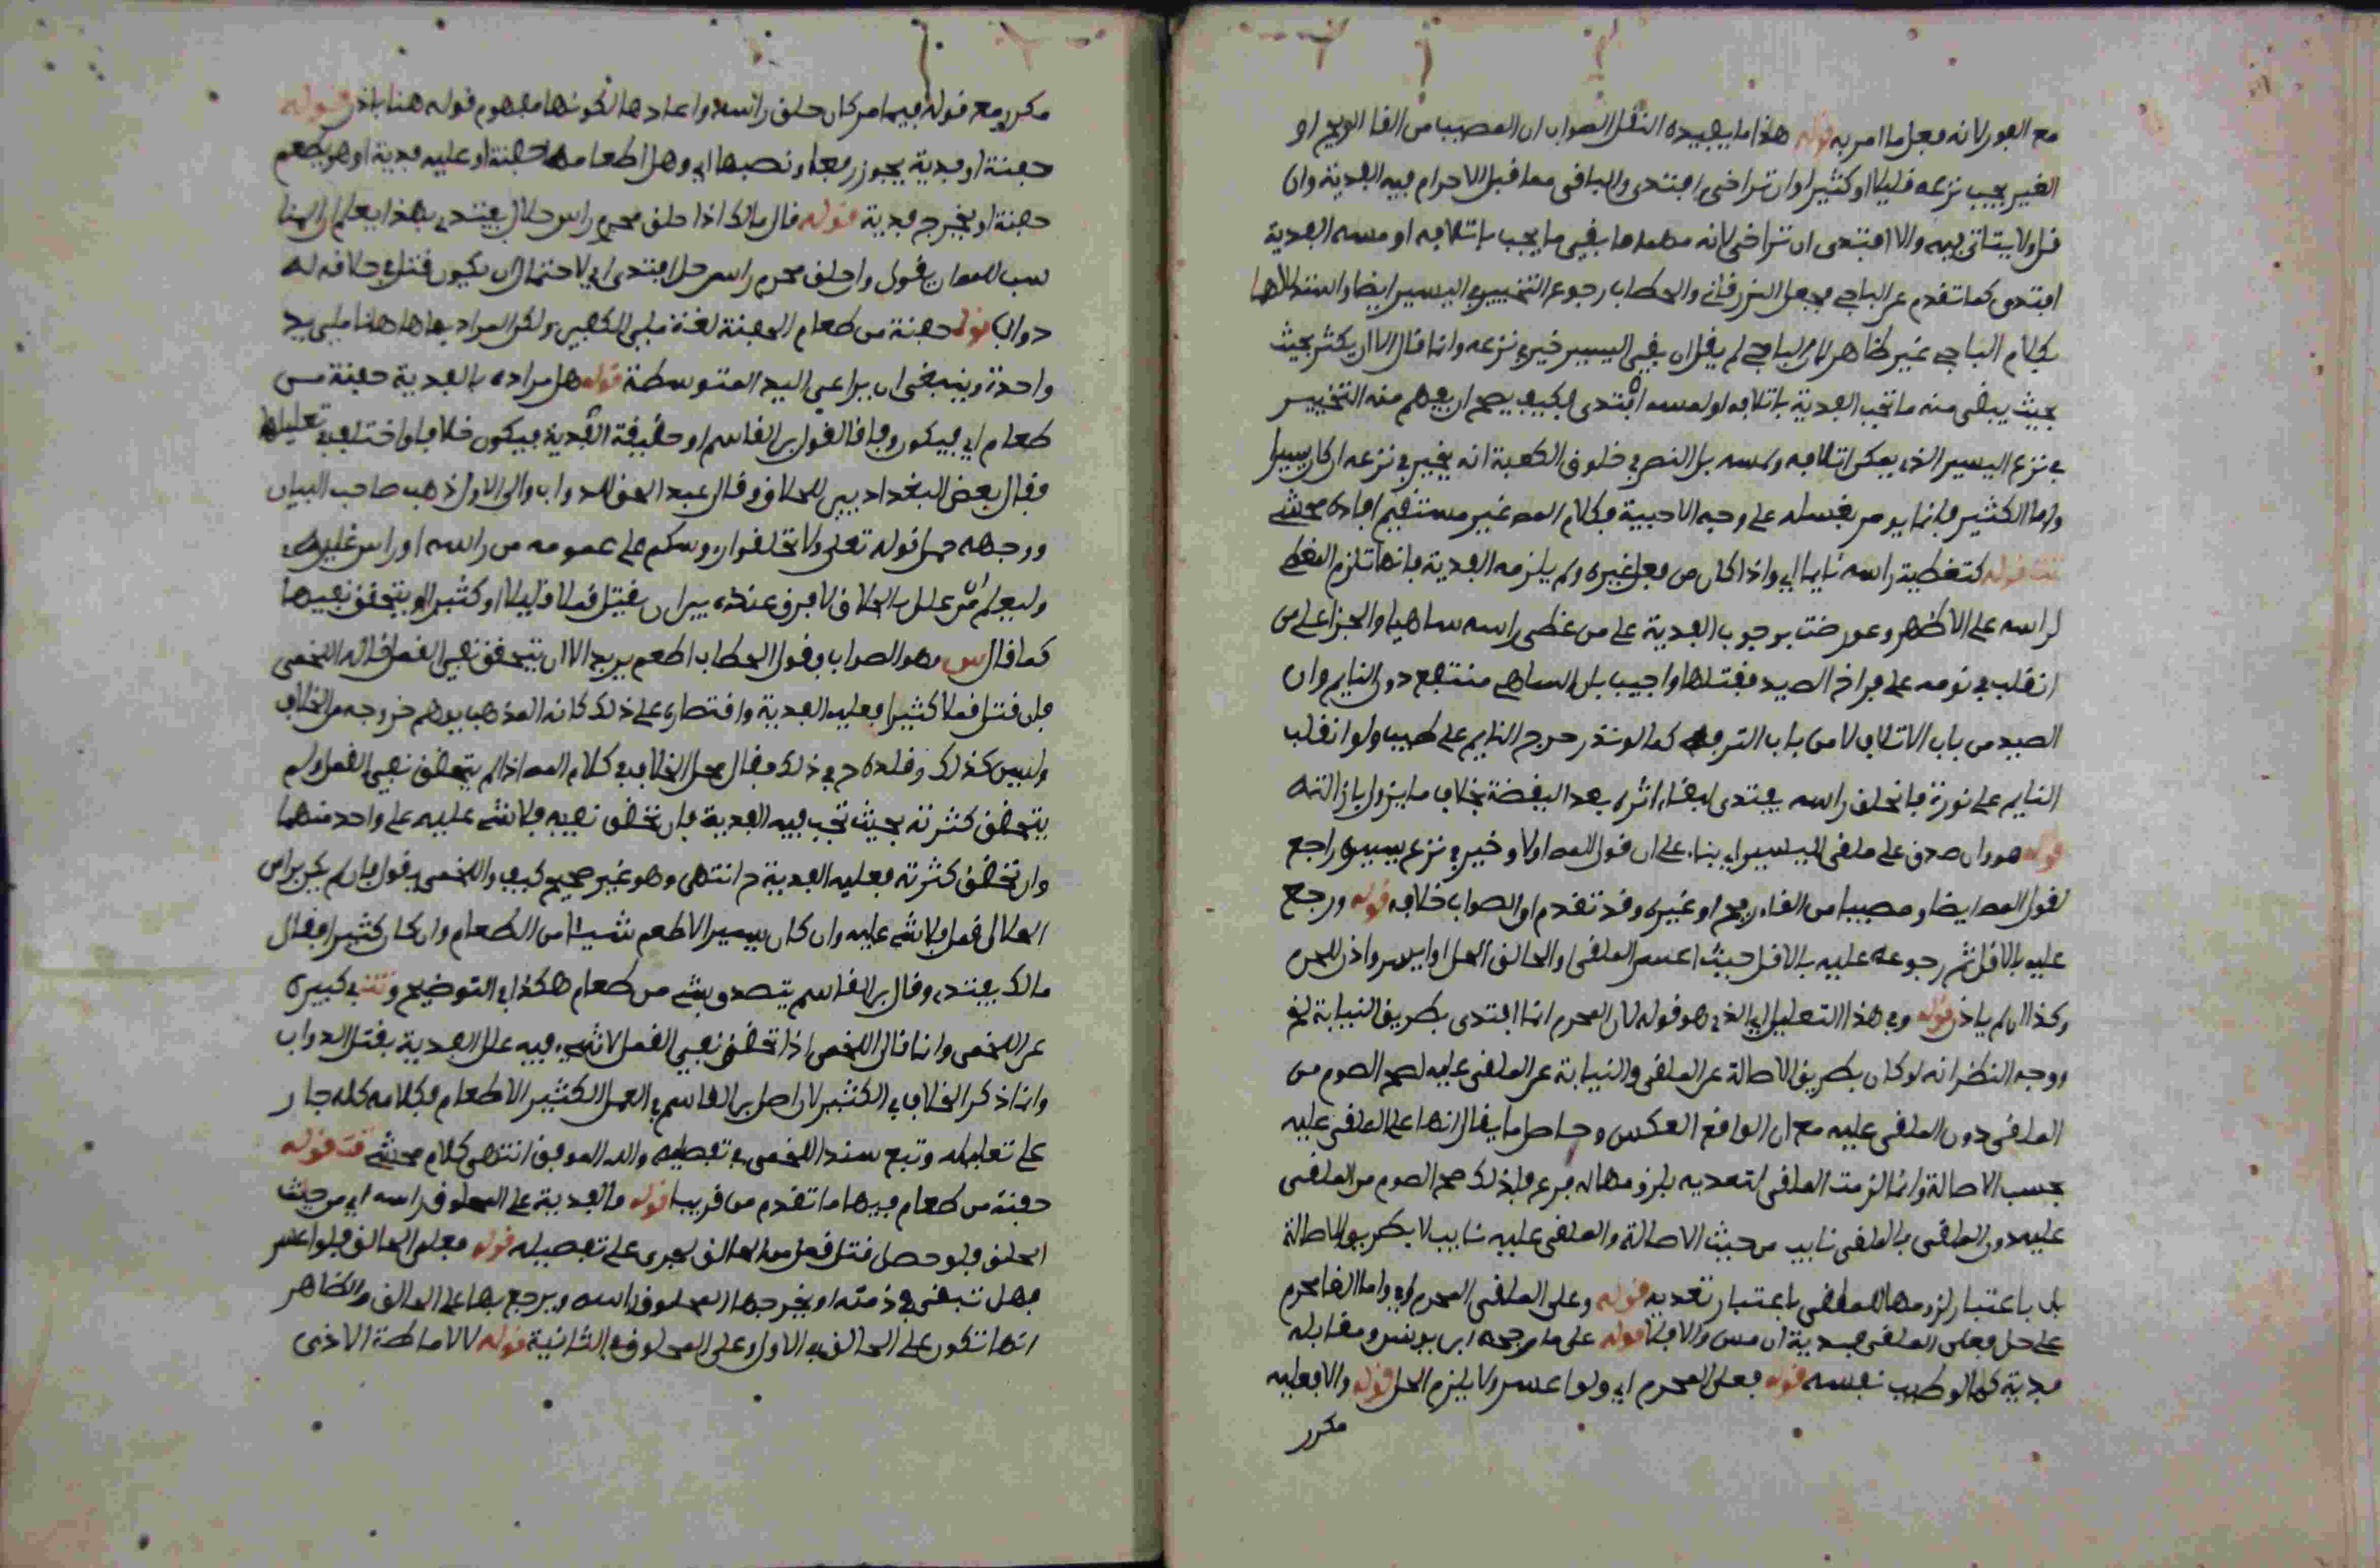 مع الفور لانه فعل ما امر به قوله هذا ما يفيده النقل الصواب ان المصيب من القا الريح او
الغير يجب نزعه قليلا او كثيرا وان تراخى افتدى والباقي مما قبل الاحرام فيه الفدية وان
قل ولا يتاتى فيه والا افتدى ان تراخى لانه مهما بقي ما يجب باتلافه او مسه الفدية
افتدى كما تقدم عن الباجي فجعل الزرقاني والحطاب رجوع التخيير في اليسير ايضا واستدلالهما
بكلام الباجي غير ظاهر لان الباجي لم يقل ان بقي اليسير خير في نزعه وانما قال الا ان يكثر بحيث
بحيث يبقى منه ما تجب الفدية باتلافه او لمسه افتدى فكيف يصح ان يفهم منه التخيير
في نزع اليسير الذي يمكن اتلافه ولمسه بل النص في خلوق الكعبة انه يخير في نزعه ان كان يسيرا
واما الكثير فانما يومر بغسله على وجه الاحبية فكلام المص غير مستقيم افاده محشي
تت قوله كتغطية راسه نايما اي واذا كان من فعل غيره ولم يلزمه الفدية فانها تلزم المغطي
لراسه على الاظهر وعورضت بوجوب الفدية على من غطى راسه ساهيا والجزا على من
انقلب في نومه على فراخ الصيد فقتلها واجيب بان الساهي منتفع دون النايم وان
الصيد من باب الاتلاف لا من باب الترفه كما لو نذر حرج النايم على طيب ولو انقلب
النايم على نورة فانحلق راسه يفتدي لبقاء اثره بعد اليقضة بخلاف ما يزول بازالته
قوله هو وان صدق على ملقى اليسير اي بناء على ان قول المص اولا وخير في نزع يسيره راجع
لقول المص ايضا ومصيبا من القاء ريح او غيره وقد تقدم ان الصواب خلافه قوله ورجع
عليه بالاقل ثم رجوعه عليه بالاقل حيث اعسر الملقي والحالق الحل او ايسر واذن للمحرم
وكذا ان لم ياذن قوله وفي هذا التعليل اي الذي هو قوله لان المحرم انما افتدى بطريق النيابة الخ
ووجه النظر انه لو كان بطريق الاصالة عن الملقي والنيابة عن الملقى عليه لصح الصوم من
الملقي دون الملقى عليه مع ان الواقع العكس وحاصل ما يقال انها على الملقى عليه
بحسب الاصالة وانما الزمت الملقي لتعديه فلزومها له فرع فلذلك صح الصوم من الملقى
عليه دون الملقي فالملقي نايب من حيث الاصالة والملقى عليه نايب لا بطريق الاصالة
بل باعتبار لزومها للملقي باعتبار تعديه قوله وعلى الملقي المحرم اي واما القا محرم
على حل فعلى الملقي فدية ان مس والا فلا قوله على ما رجحه ابن يونس ومقابله
فدية كما لو طيب نفسه قوله فعلى المحرم اي ولو اعسر ولا يلزم الحل قوله والا فعليه
مكرر
مكرر مع قوله فيما مر كان حلق راسه واعادها لكونها مفهوم قوله هنا باذن قوله
حفنة او فدية يجوز رفعها ونصبها اي وهل اطعامه حفنة او عليه فدية او هو يطعم
حفنة او يخرج فدية قوله قال مالك اذا حلق محرم راس حلال يفتدي بهذا يعلم ان المنا
سب للمص ان يقول وان حلق محرم راس حل افتدى اي لاحتمال ان يكون قتل في حلاقه له
دوابا قوله حفنة من طعام الحفنة لغة ملى الكفين ولكن المراد بها هاهنا ملى يد
واحدة وينبغي ان يراعى اليد المتوسطة قوله هل مراده بالفدية حفنة من
طعام اي فيكون وفاقا لقول ابن القاسم او حقيقة الفدية فيكون خلافا واختلف في تعليلها
فقال بعض البغداديين للحلاق وقال عبد الحق للدواب والى الاول ذهب صاحب البيان
ووجهه حمل قوله تعلى ولا تحلقوا رءوسكم على عمومه من راسه او راس غيره
وليعلم ان من علل بالحلاق لا فرق عنده بين ان يقتل قملا قليلا او كثيرا او يتحقق نفيها
كما قال س وهو الصواب وقول الحطاب اطعم يريد الا ان يتحقق نفي القمل قاله اللخمي
فان قتل قملا كثيرا فعليه الفدية واقتصاره على ذلك كانه المذهب يوهم خروجه من الخلاف
وليس كذلك وقلده ج في ذلك فقال محل الخلاف في كلام المص اذا لم يتحقق نفي القمل ولم
يتحقق كثرته بحيث تجب فيه الفدية فان تحقق نفيه فلا شي عليه على واحد منهما
وان تحقق كثرته فعليه الفدية ح انتهى وهو غير صحيح كيف واللخمي يقول فان لم يكن براس
الحلال قمل فلا شي عليه وان كان يسيرا اطعم شيئا من الطعام وان كان كثيرا فقال
مالك يفتدي وقال ابن القاسم يتصدق بشي من طعام هكذا في التوضيح وتت في كبيره
عن اللخمي وانما قال اللخمي اذا تحقق نفي القمل لا شي فيه علل الفدية بقتل الدواب
وانما ذكر الخلاف في الكثير لان اصل ابن القاسم في القمل الكثير الاطعام فكلامه كله جار
على تعليله وتبع سندا اللخمي في تفصيله والله الموفق انتهى كلام محشي تت قوله
حفنة من طعام فيها ما تقدم من قريب قوله فالفدية على المحلوق راسه اي من حيث
الحلق فلو حصل قتل قمل من الحالق لجرى على تفصيله قوله فعلى الحالق فلو اعسر
فهل تبقى في ذمته او يخرجها المحلوق راسه ويرجع بها على الحالق والظاهر
انها تكون على الحالق في الاول وعلى المحلوق في الثانية قوله لا لاماطة الاذى